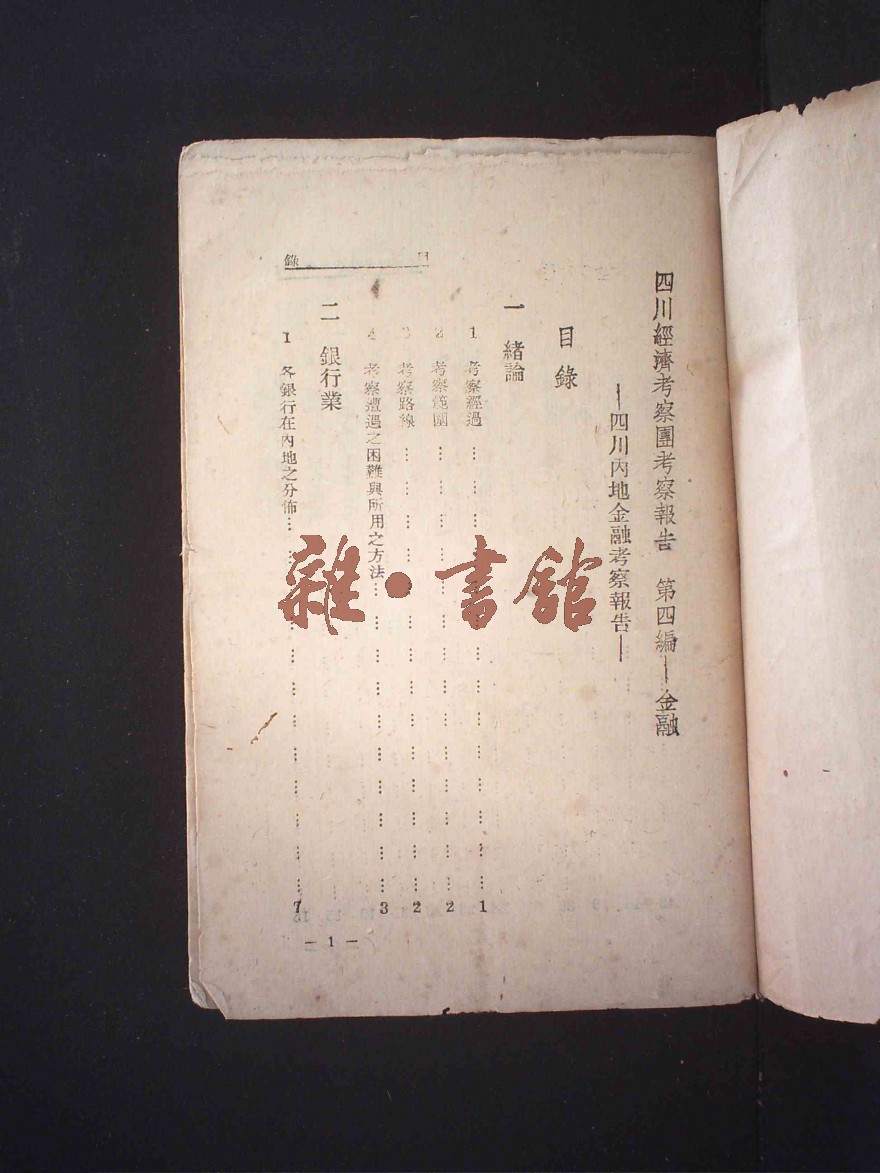 四川經濟考察團考察報告　第四編—金融
—四川內地金融考察報告—
目錄
一　緒論
1　考察經過…………………………1
2　考察範圍…………………………2
3　考察路線…………………………2
4　考察遭遇之困難與所用之方法…………………3
二　銀行業
1　各銀行在內地之分佈…………………………7
目錄
— 1 —
雜·書館